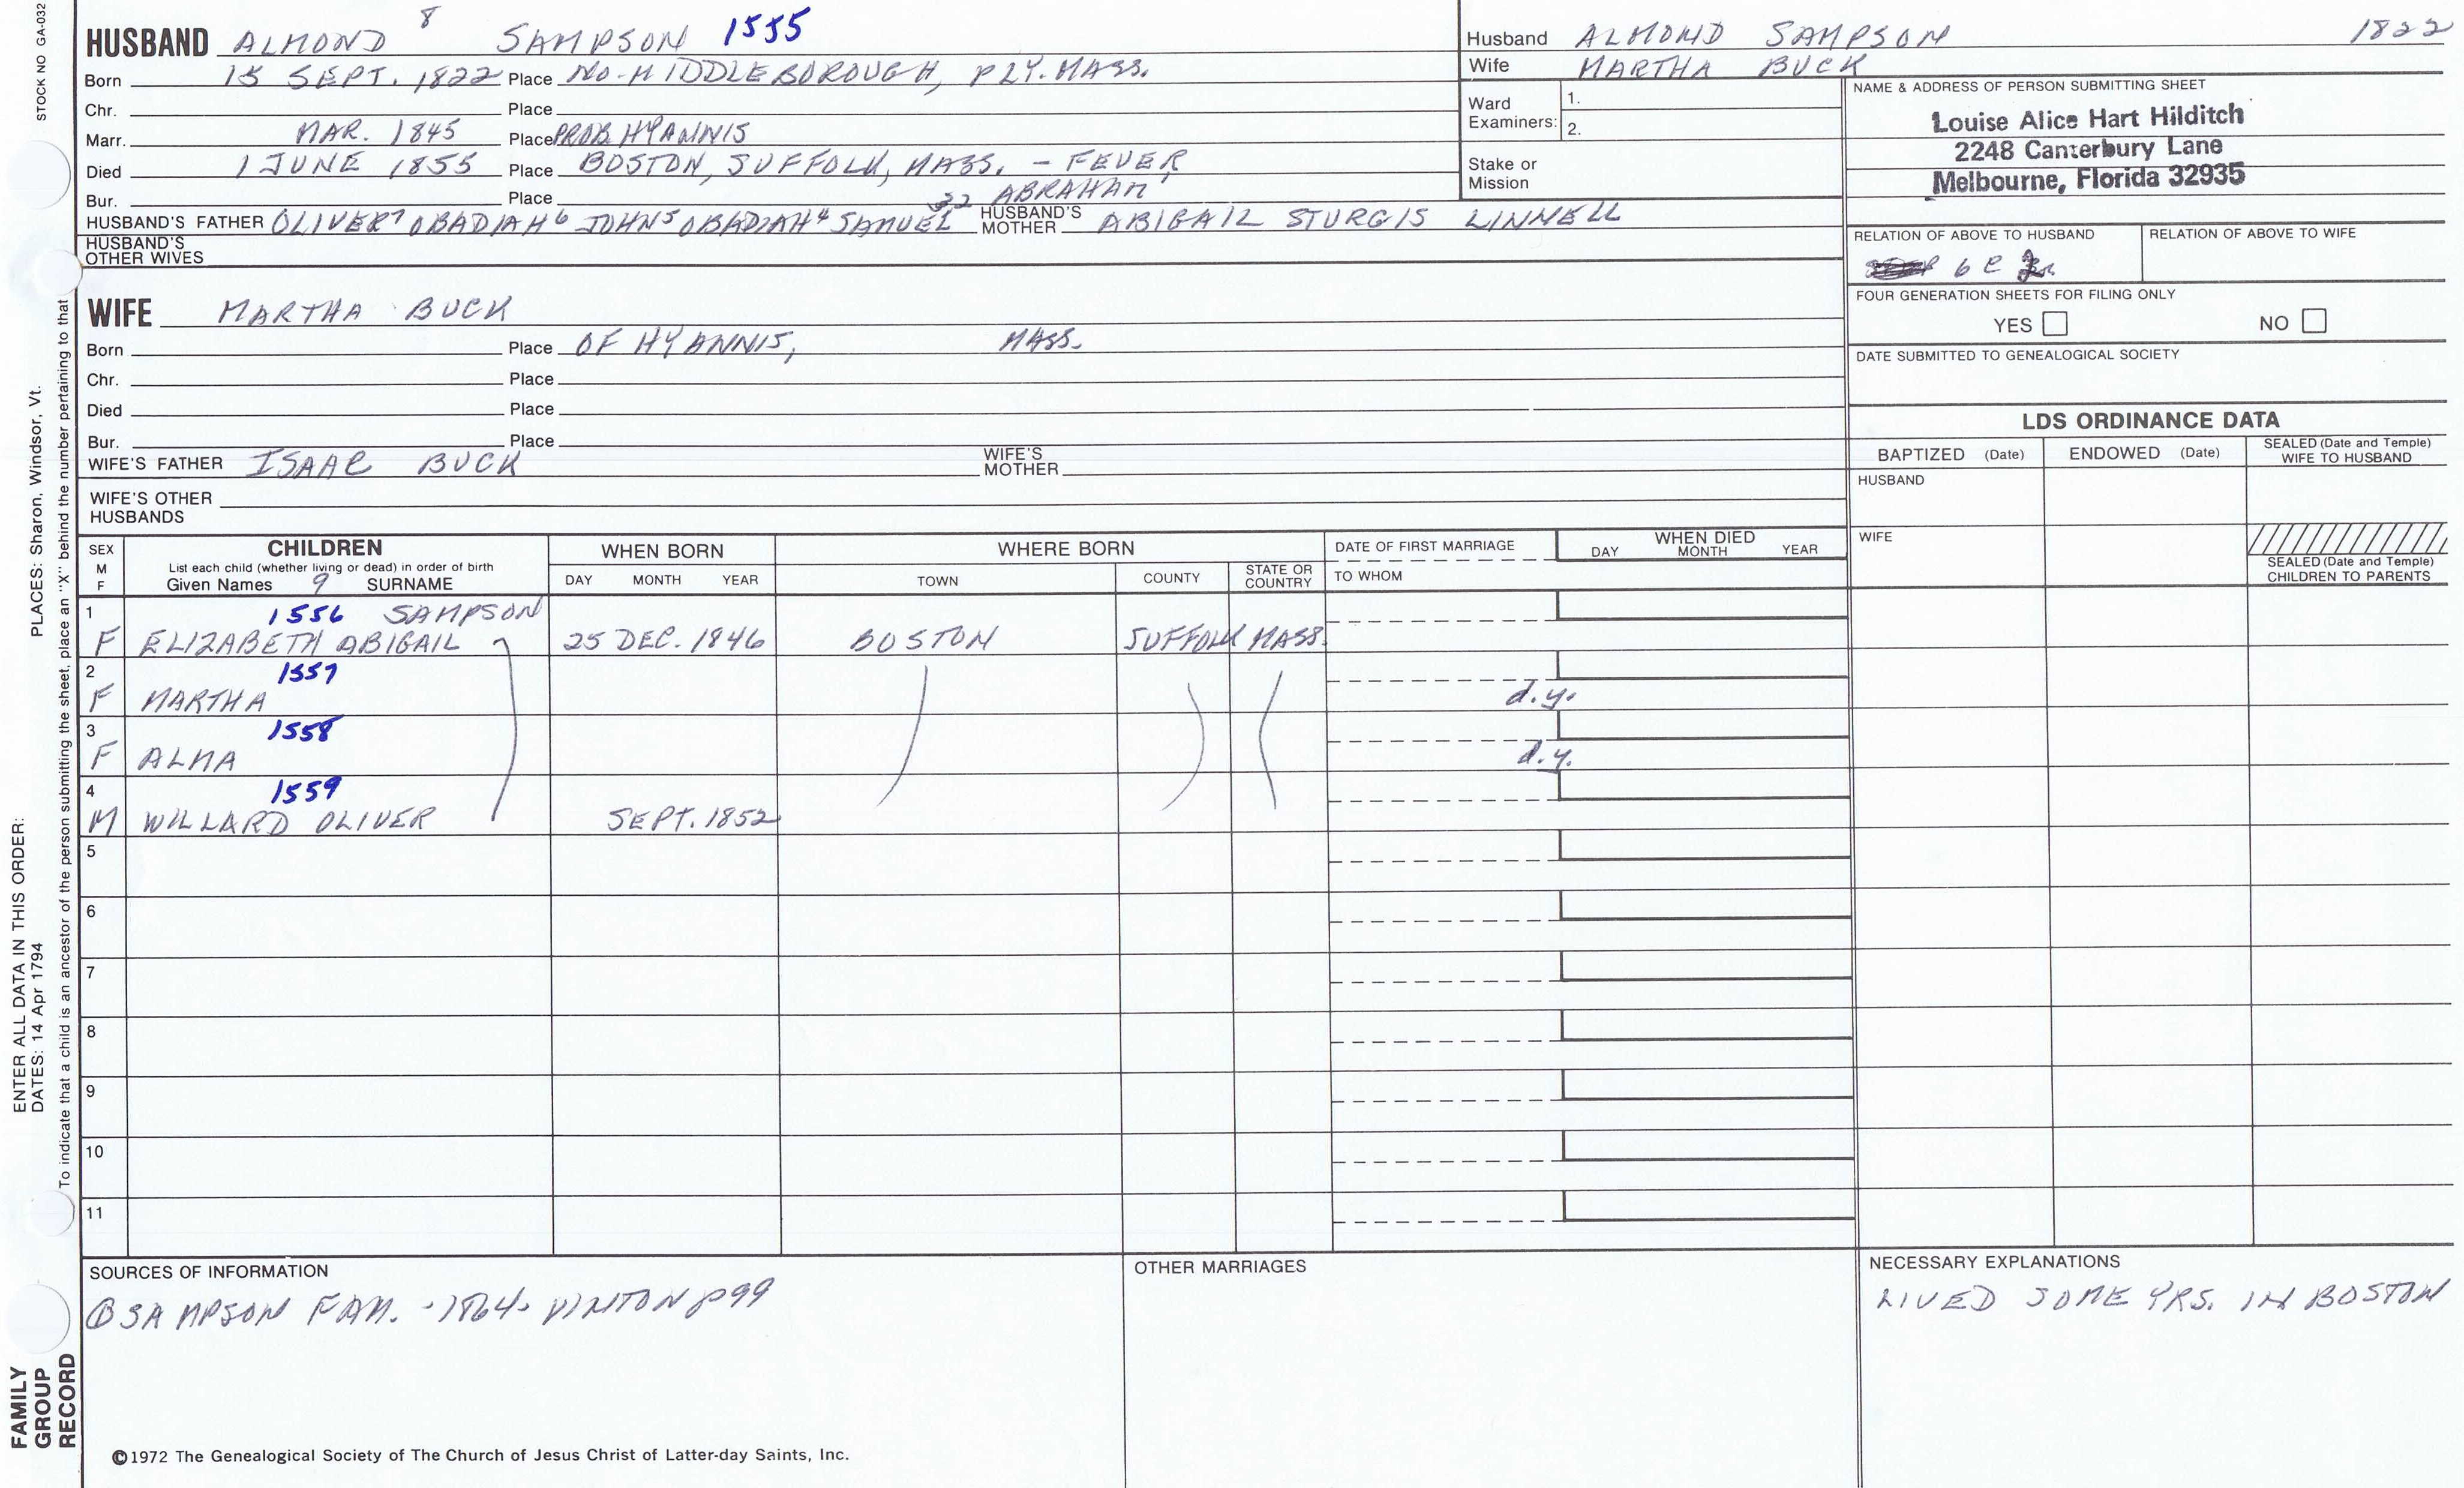 STOCK NO GA-032
PLACES: Sharon, Windsor, Vt.
ENTER ALL DATA IN THIS ORDER:
DATES: 14 Apr 1794
To indicate that a child is an ancestor of the person submitting the sheet, place an "X" behind the number pertaining to that
FAMILY
GROUP
RECORD
HUSBAND ALMOND 8 SAMPSON 1555
Born 15 SEPT. 1822 Place NO. MIDDLEBOROUGH, PLY. MASS.
Chr. Place
Marr. MAR. 1845 Place PROB. HYANNIS
Died 1 JUNE 1855 Place BOSTON, SUFFOLK, MASS. - FEVER
Bur. Place
ABRAHAM
HUSBAND'S FATHER OLIVER 7 OBADIAH 6 JOHN 5 OBADIAH 4 SAMUEL HUSBAND'S MOTHER ABIGAIL STURGIS LINNELL
HUSBAND'S OTHER WIVES
Husband ALMOND SAMPSON 1822
Wife MARTHA BUCK
Ward Examiners: 1.
2.
Stake or Mission
NAME & ADDRESS OF PERSON SUBMITTING SHEET
Louise Alice Hart Hilditch
2248 Canterbury Lane
Melbourne, Florida 32935
RELATION OF ABOVE TO HUSBAND RELATION OF ABOVE TO WIFE
6 C
FOUR GENERATION SHEETS FOR FILING ONLY
YES NO
DATE SUBMITTED TO GENEALOGICAL SOCIETY
WIFE MARTHA BUCK
Born Place OF HYANNIS, MASS.
Chr. Place
Died Place
Bur. Place
WIFE'S FATHER ISAAC BUCK WIFE'S MOTHER
WIFE'S OTHER HUSBANDS
LDS ORDINANCE DATA
BAPTIZED (Date) ENDOWED (Date) SEALED (Date and Temple) WIFE TO HUSBAND
HUSBAND
WIFE
SEALED (Date and Temple)
CHILDREN TO PARENTS
SEX M F CHILDREN WHEN BORN WHERE BORN DATE OF FIRST MARRIAGE WHEN DIED
List each child (whether living or dead) in order of birth
Given Names 9 SURNAME DAY MONTH YEAR TOWN COUNTY STATE OR COUNTRY TO WHOM DAY MONTH YEAR
1 1556 SAMPSON
F ELIZABETH ABIGAIL 25 DEC. 1846 BOSTON SUFFOLK MASS.
2 1557
F MARTHA d.y.
3 1558
F ALMA d.y.
4 1559
M WILLARD OLIVER SEPT. 1852
5
6
7
8
9
10
11
SOURCES OF INFORMATION
SAMPSON FAM. -1864- VINTON p99
OTHER MARRIAGES
NECESSARY EXPLANATIONS
LIVED SOME YRS. IN BOSTON
©1972 The Genealogical Society of The Church of Jesus Christ of Latter-day Saints, Inc.